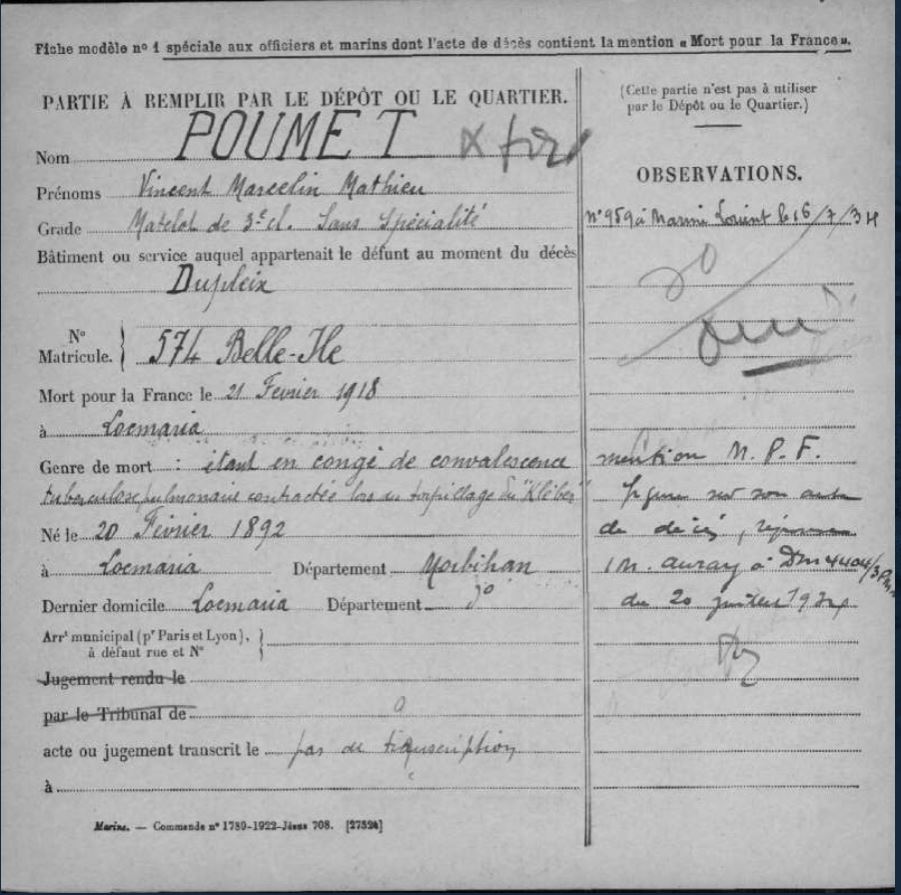 Fiche modèle nº 1 spéciale aux officiers et marins dont l'acte de décès contient la mention « Mort pour la France ».
PARTIE À REMPLIR PAR LE DÉPÔT OU LE QUARTIER.
Nom POUMET
Prénoms Vincent Marcelin Mathieu
Grade Matelot de 3e cl. Sans Spécialité
Bâtiment ou service auquel appartenait le défunt au moment du décès
Dupleix
Nº
Matricule. } 574 Belle-Ile
Mort pour la France le 21 Fevrier 1918
à Locmaria
Genre de mort : étant en congé de convalescence
tuberculose pulmonaire contractée lors du torpillage du "Kléber"
Né le 20 Février 1892
à Locmaria Département Morbihan
Dernier domicile Locmaria Département do
Arrt municipal (pr Paris et Lyon),
à défaut rue et Nº }
Jugement rendu le
par le Tribunal de
acte ou jugement transcrit le pas de transcription
à
Marine. — Commande nº 1789-1922-Jésus 708. [27524]
(Cette partie n'est pas à utiliser
par le Dépôt ou le Quartier.)
OBSERVATIONS.
Nº 959 à Marine Lorient le 16/7/34
do
oui
mention M. P. F.
figure sur son acte
de décès,
I M. Auray à DM 4404/3
du 20 juillet 1934